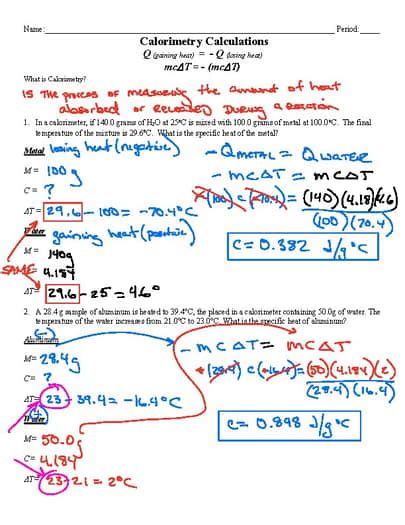 Name: Period:
Calorimetry Calculations
Q (gaining heat) = - Q (losing heat)
mcΔT = - (mcΔT)
What is Calorimetry?
IS THE PROCESS OF MEASURING the AMOUNT OF HEAT
absorbed or released DURING a REACTION
1. In a calorimeter, if 140.0 grams of H₂O at 25°C is mixed with 100.0 grams of metal at 100.0°C. The final
temperature of the mixture is 29.6°C. What is the specific heat of the metal?
Metal losing heat (negative)
- QMETAL = QWATER
M = 100 g
- mCΔT = mCΔT
C = ?
-(100) C (-70.4) = (140)(4.18)(4.6)
(100)(70.4)
ΔT = 29.6 - 100 = -70.4°C
Water gaining heat (positive)
M = 140g
C = 0.382 J/g°C
SAME C = 4.184
ΔT = 29.6 - 25 = 4.6°
2. A 28.4 g sample of aluminum is heated to 39.4°C, the placed in a calorimeter containing 50.0g of water. The
temperature of the water increases from 21.0°C to 23.0°C. What is the specific heat of aluminum?
(-)
Aluminum
- mCΔT = mCΔT
M= 28.4g
-(28.4) C (-16.4) = (50)(4.184)(2)
(28.4)(16.4)
C= ?
ΔT= 23 - 39.4 = -16.4°C
(+)
Water
C = 0.898 J/g°C
M= 50.0g
C= 4.184
ΔT= 23 - 21 = 2°C